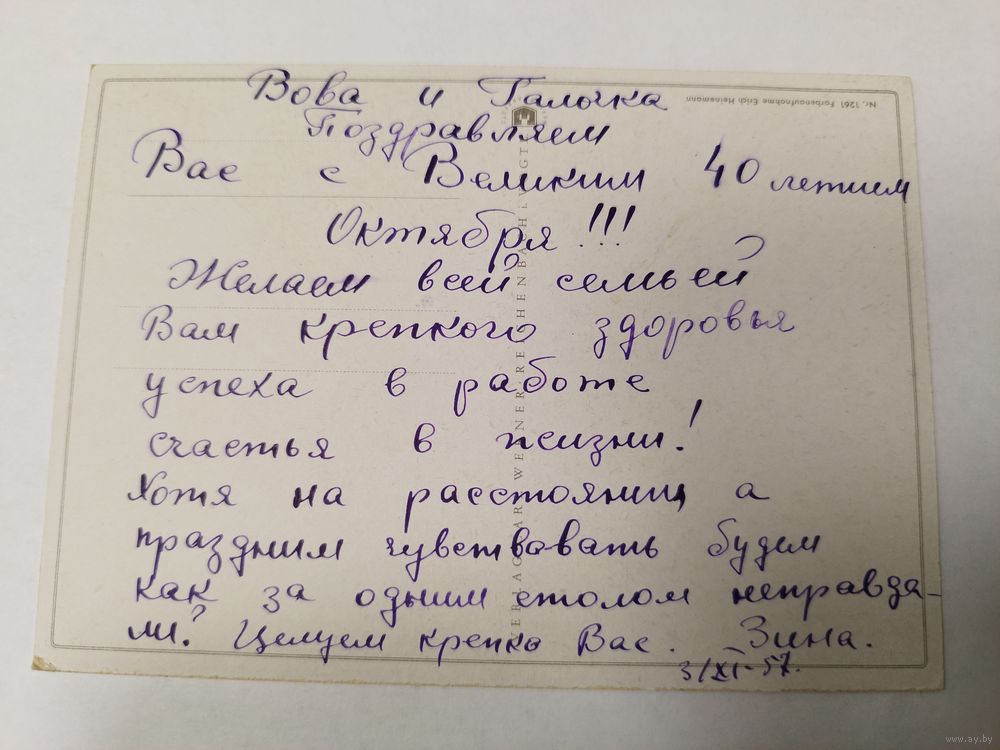 Вова и Галочка
Поздравляем
Вас с Великим 40 летием
Октября!!!
Желаем всей семьей
Вам крепкого здоровья
успеха в работе
счастья в жизни!
Хотя на расстоянии, а
праздним чувствовать будем
как за одним столом неправда-
ли? Целуем крепко Вас. Зина.
3/XI-57.
Nr. 1261 Farbenaufnahme Erich Heinemann
www.ay.by